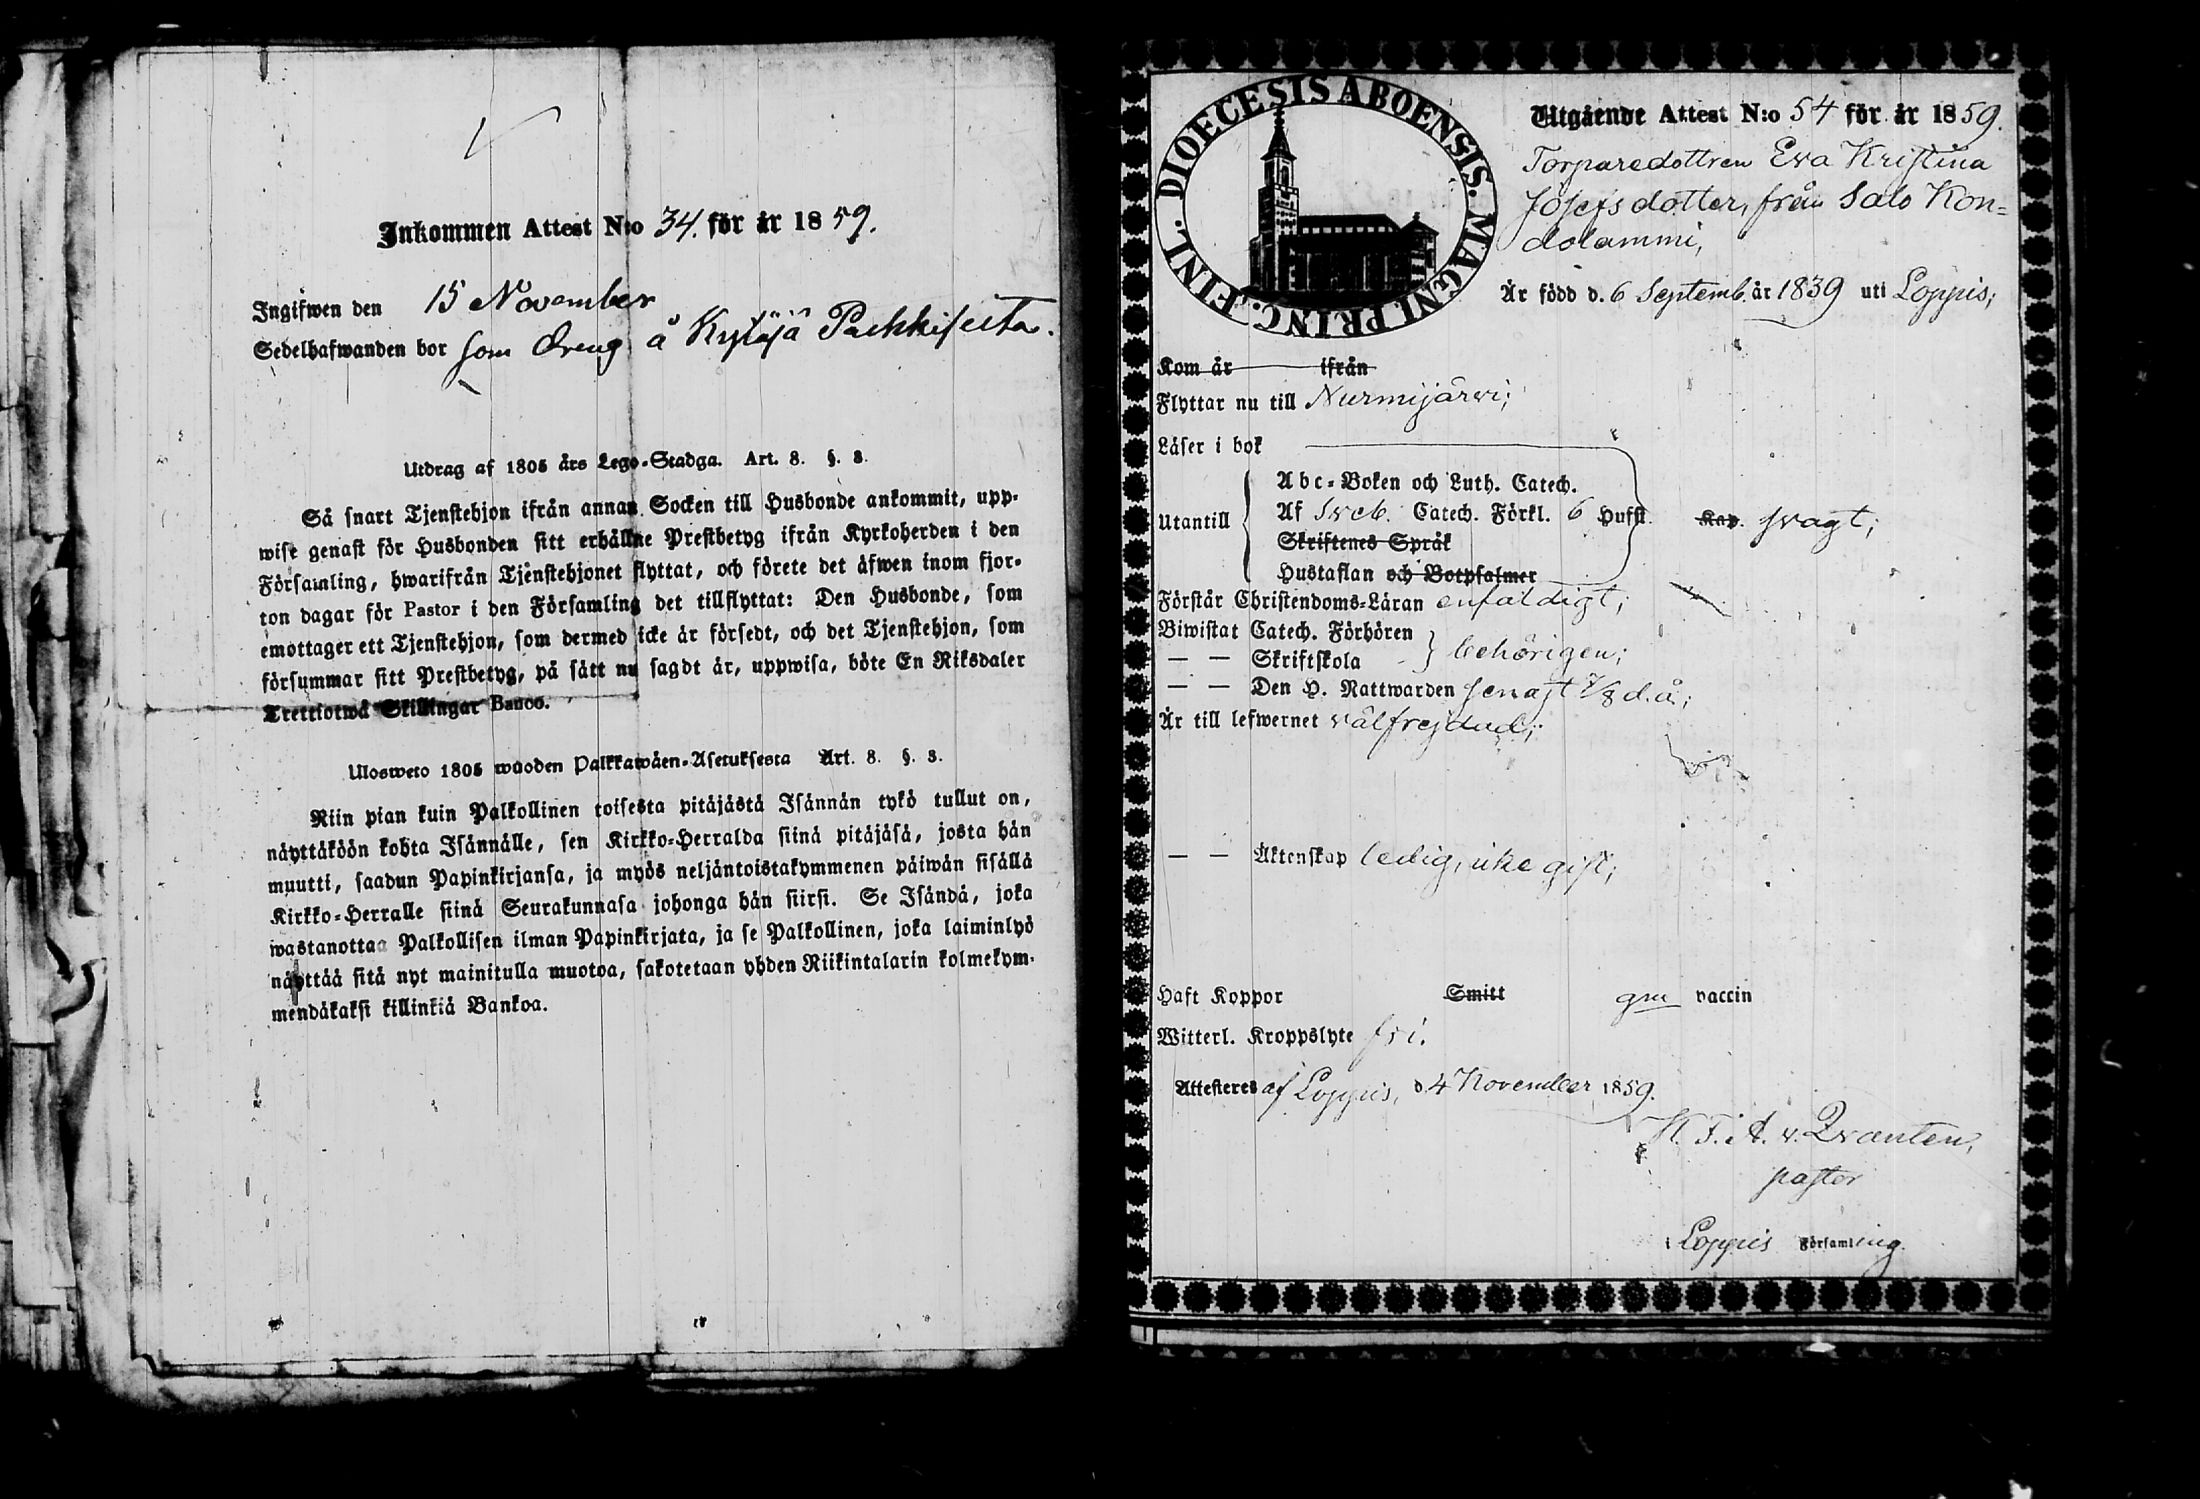 Inkommen Attest N:o 34. för år 1859.
Ingifwen den 15 November
Sedelhafwanden bor som dreng å Kytäjä
Utdrag af 1805 års Lego-Stadga. Art. 8. §. 3.
Så snart Tjenstehjon ifrån annan Socken till Husbonde ankommit, upp-
wise genast för Husbonden sitt erhållne Prestbetyg ifrån Kyrkoherden i den
Församling, hwarifrån Tjenstehjonet flyttat, och förete det äfwen inom fjor-
ton dagar för Pastor i den Församling det tillflyttat: Den Husbonde, som
emottager ett Tjenstehjon, som dermed icke är försedt, och det Tjenstehjon, som
försummar sitt Prestbetyg, på sätt nu sagdt är, uppwisa, böte En Riksdaler
Trettiotwå Skillingar Banco.
Ulosweto 1805 wuoden Palkkawäen-Asetuksesta Art. 8. §. 3.
Niin pian kuin Palkollinen toisesta pitäjästä Isännän tykö tullut on,
näyttäköön kohta Isännälle, sen Kirkko-Herralda siinä pitäjäsä, josta hän
muutti, saadun Papinkirjansa, ja myös neljäntoistakymmenen päiwän sisällä
Kirkko-Herralle siinä Seurakunnasa johonga hän siirsi. Se Isändä, joka
wastanottaa Palkollisen ilman Papinkirjata, ja se Palkollinen, joka laiminlyö
näyttää sitä nyt mainitulla muotoa, sakotetaan yhden Riikintalarin kolmekym-
mendäkaksi killinkiä Bankoa.
DIOECESIS ABOENSIS. MAGNI PRINC. FINL.
Utgående Attest N:o 54 för år 1859.
Torparedottren Eva Kristina
Josefsdotter, från Salo Kon=
dolammi,
Är född d. 6 Septemb. år 1839 uti Loppis;
Kom år ifrån
Flyttar nu till Nurmijärvi;
Läser i bok
Utantill
Abc-Boken och Luth. Catech.
Af Sveb. Catech. Förkl. 6 Hufst. Kap. svagt;
Skriftenes Språk
Hustaflan och Botpsalmer
Förstår Christendoms-Läran enfaldigt;
Biwistat Catech. Förhören
— — Skriftskola behörigen;
— — Den H. Nattwarden senast d. å.;
Är till lefwernet välfrejdad;
— — Äktenskap ledig, icke gift;
Haft Koppor Smitt gm vaccin
Witterl. Kroppslyte fri.
Attesteres af Loppis, d. 4 November 1859.
H. F. A. v. Qvanten,
pastor
i Loppis Församling.